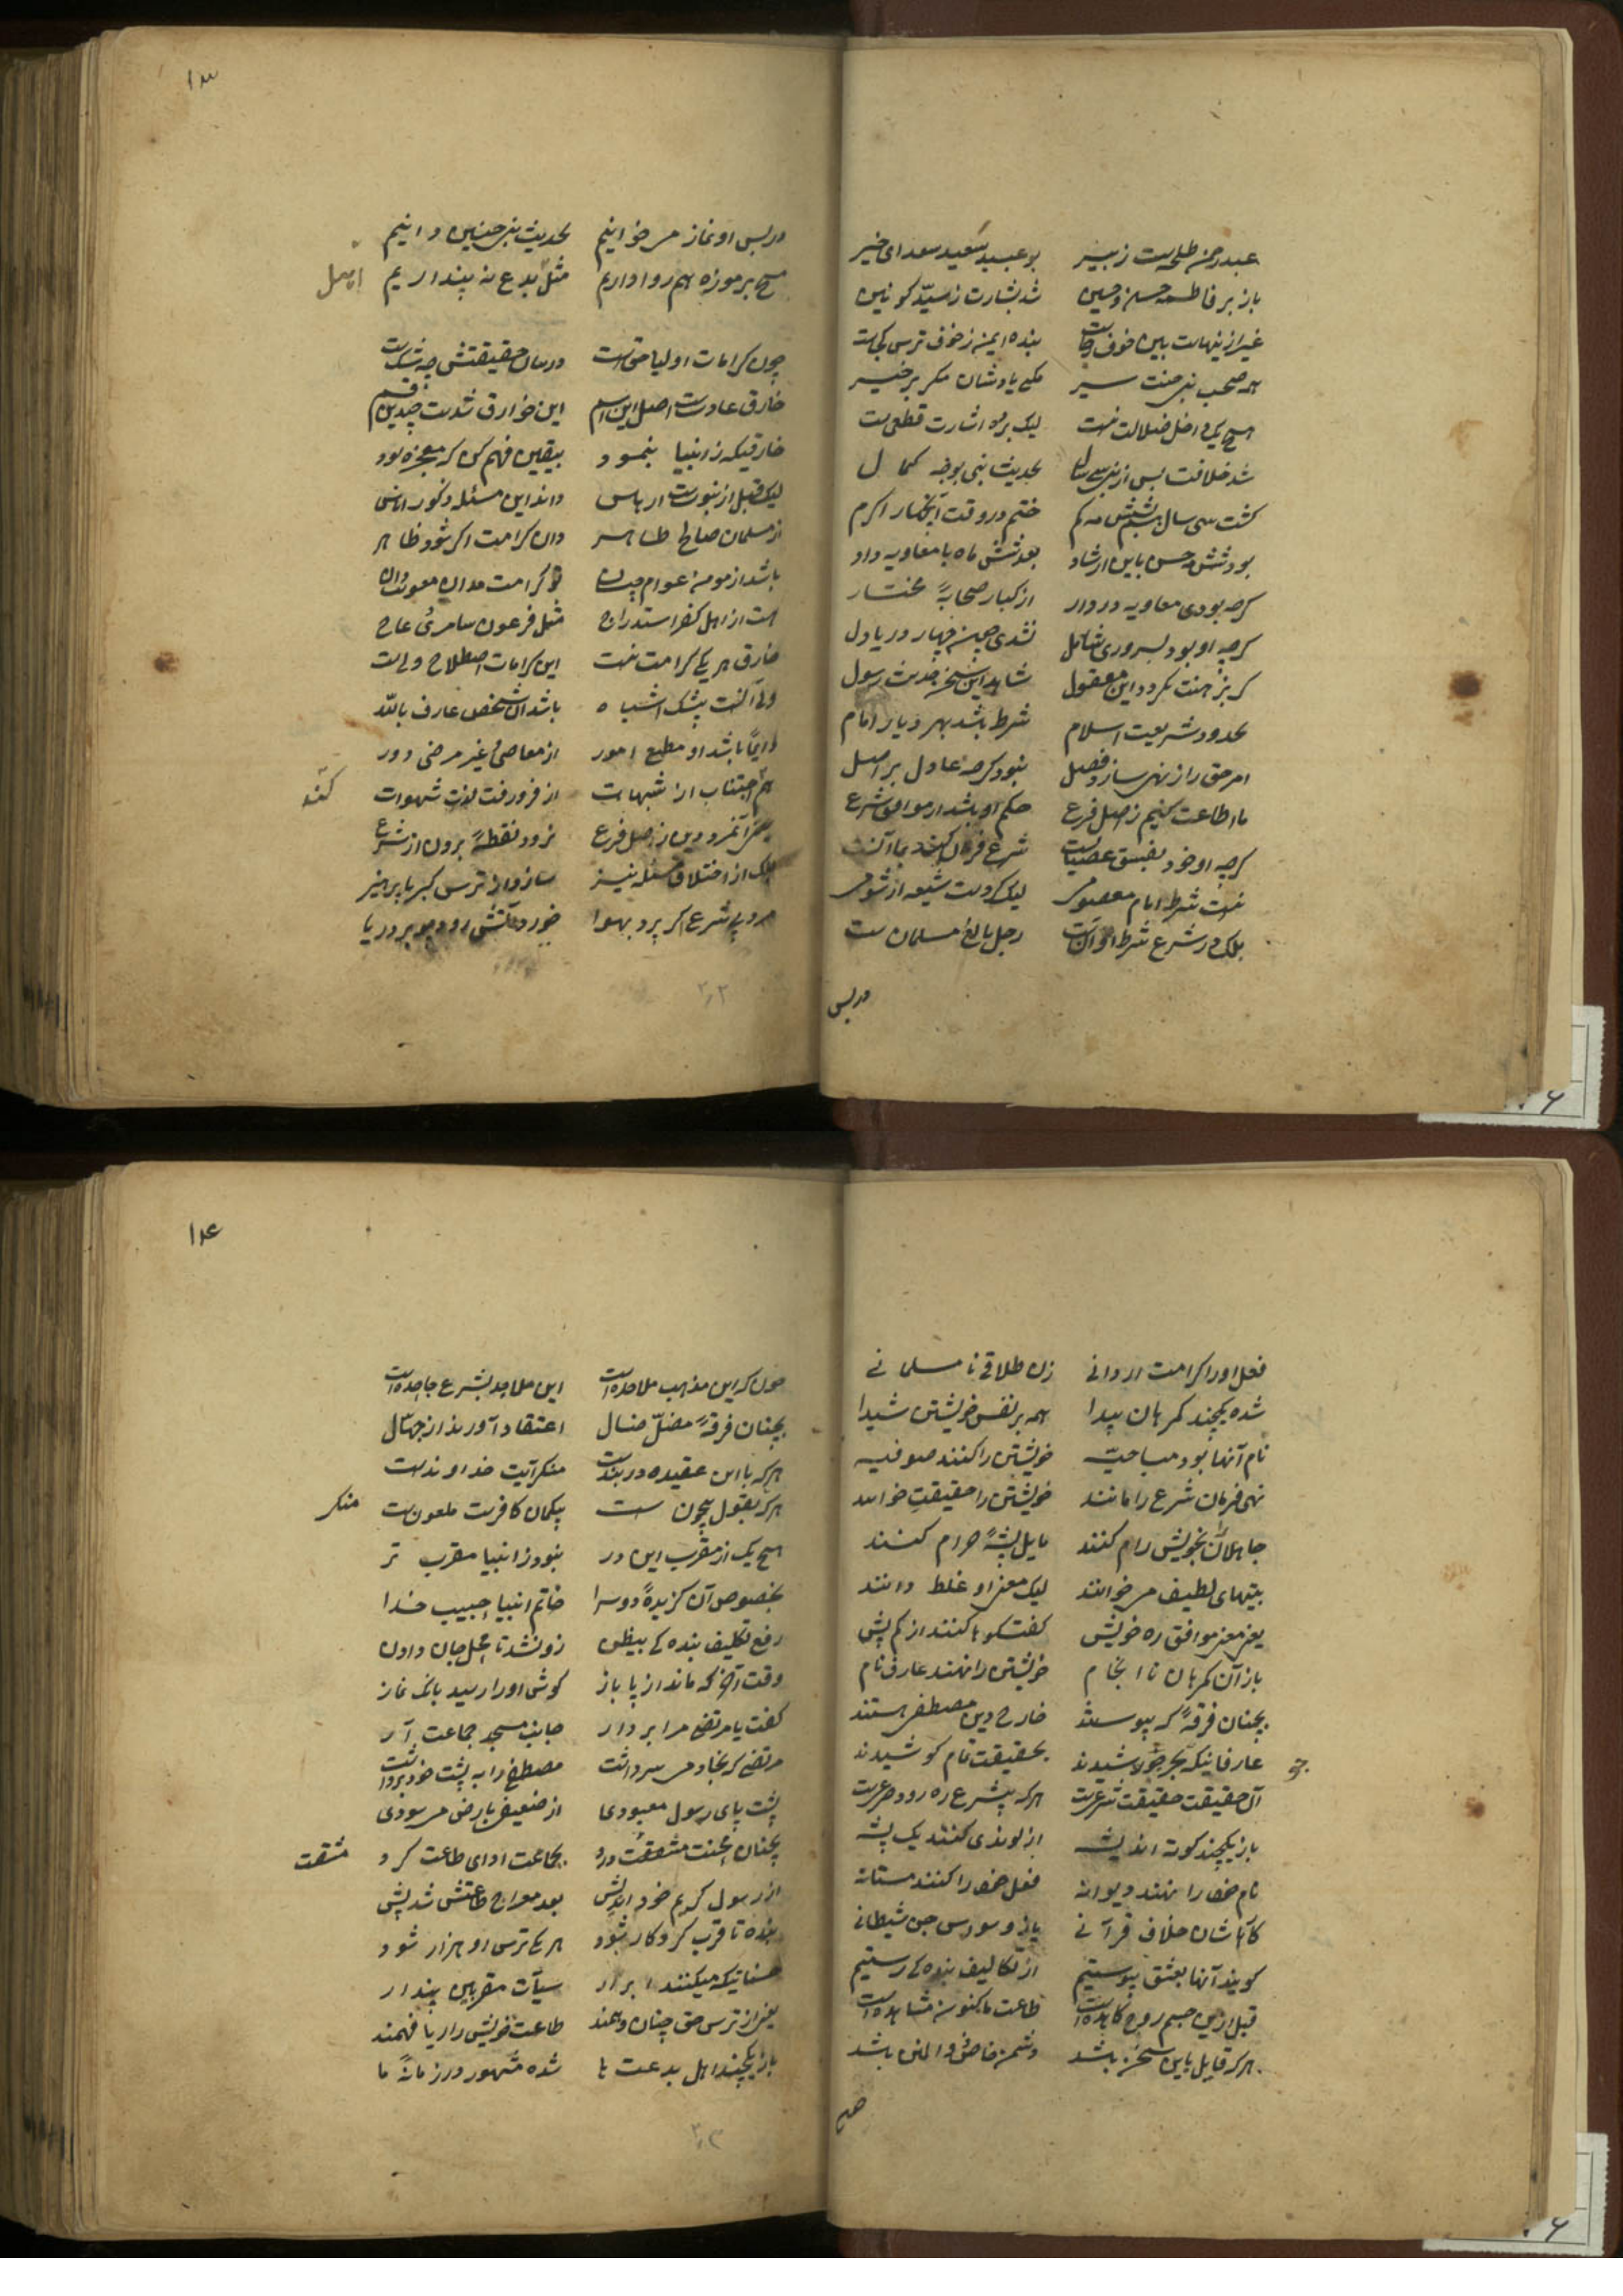 عبد رحمن طلحه ست زبیر بو عبید سعید سعد ای خیر
باز بر فاطمه حسن و حسین شد بشارت ز سید کونین
غیر از نیهاست بین خوف رجا بنده ایمن ز خوف ترس کجاست
همه صحب نبی سیر مکن یادشان مکر بر خیر
هیچ یک داخل ضلالت نیست لیک بر ده اشارت قطعی ست
شد خلافت پس از نبی سی سال بحدیث نبی بوجه کمال
کشت سی سال شش مه کم ختم در وقت آنخیار اکرم
بود شش مه حسن باین ارشاد بعد شش ماه با معاویه داد
کرچه بودی معاویه در دار از کبار صحابهٔ مختار
کرچه او بود بسروری شامل نشدی چهار دریا دل
شاهد این سخن حدیث رسول
بحدود شریعت اسلام شرط باشد بهر دیار امام
امر حق را ز نهی سازد فصل نبود کرچه عادل بر اصل
ما اطاعت کنیم ز اصل فرع حکم او باشد ار موافق شرع
کرچه او خود بفسق عصیانست شرع فرمان کند بما آنست
نیست شرط امام معصومی لیک کردست شیعه از شومی
بلکه در شرع شرط او آنست رجل بالغ مسلمان ست
در پس
۱۳
در پس او نماز می خوانیم بحدیث نبی چنین دانیم
مسح بر موزه هم روا داریم مثل بدع نه پنداریم
چون کرامات اولیا حق است در میان حقیقتش چه شک است
خارق عادت ست اصل این اسم این خوارق شدست چندین قسم
خارقیکه ز انبیا بنمود بیقین فهم کن که معجزه بود
لیک قبل از نبوت ست ارهاص داند این مسئله ذکور اناث
از مسلمان صالح طاهر دان کرامت اکر شود ظاهر
باشد از مومن عوام
هست از اهل کفر استدراج مثل فرعون سامری عاج
خارق هر یکی کرامت نیست این کرامات اصطلاح ولیست
ولی آنست بیشک اشتباه باشد آن شخص عارف بالله
دایماً باشد او مطیع امور از معاصی غیر مرضی دور
هم اجتناب از شبهات از فرو رفت لذت شهوات
کند
یعنی آنمرد دین ز اصل فرع نرود نقطهٔ برون از شرع
بلکه از اختلاف مسئله نیز سازد از ترس کبریا پرهیز
مرد بی شرع اکر پرد بهوا خورد آتش رود چو بر دریا
۲۲
فعل او را کرامت ار دانی زن طلاقی نا مسلمانی
شده یکچند کمرهان پیدا همه بر نفس خویشتن شیدا
نام آنها بود مباحیه خویشتن را کنند صوفیه
نهی فرمان شرع را مانند خویشتن را حقیقت خوانند
جاهلان را بخویش رام کنند مایل پیشهٔ حرام کنند
بیتهای لطیف می خوانند لیک معنی او غلط دانند
یعنی معنی موافق ره خویش کفتکوها کنند از کم پیش
باز آن کمرهان نا انجام خویشتن را نهند عارف نام
بچنان فرقهٔ که پیوستند خارج دین مصطفی هستند
عارفانیکه بحر نوشیدند بحقیقت تمام کوشیدند
آن حقیقت حقیقت شرعیست هرکه بیشرع ره رود صرعیست
باز یکچند کوته اندیشه از لوندی کنند یک پیشه
نام خود را نهند دیوانه فعل خود را کنند مستانه
کارها شان خلاف قرآنی باز وسواس جن شیطانی
کویند آنها بعشق پیوستیم از تکالیف بنده کی رستیم
قبل ازین جسم روح کاهده است طاعت ما کنون مشاهده است
هرکه قایل باین سخن باشد دشمن خاص ذو المنن باشد
۱۴
چون که این مذهب ملاحده است این ملاحد بشرع جاحده است
بچنان فرقهٔ مضل ضال اعتقاد آورند از جهال
هرکه با این عقیده در بندست منکر آیت خداوندست
هرکه بقول بیچون ست بیکمان کافرست ملعون ست
منکر
هیچ یک از مقرب این در نبود ز انبیا مقرب تر
بخصوص آن کزیدهٔ دوسرا خاتم انبیا حبیب خدا
رفع تکلیف بنده کی بیظن زو نشد تا محل جان دادن
وقت آخر که ماند از پا باز کوش او را رسید بانک نماز
کفت یا مرتضی مرا بردار جانب مسجد جماعت آر
مرتضی که بجا دمی سر داشت مصطفی را به پشت خود برداشت
پشت پای رسول معبودی از ضعیفی بارض می سودی
بچنان محنت مشقت درد بجماعت ادای طاعت کرد
مشقت
از رسول کریم خود اندیش بعد معراج طاعتش شد بیش
بنده تا قرب کردکار شود هر یکی ترس او هزار شود
حسناتیکه میکنند ابرار سیآت مقربین پندار
یعنی از ترس حق چنان وهمند طاعت خویش را ریا فهمند
باز یکچند اهل بدعت ها شده مشهور در زمانهٔ ما
۲۳